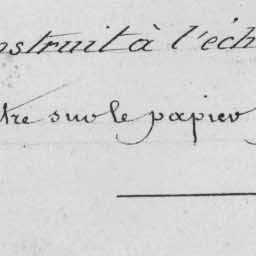 nstruit à l'éch
tre sur le papier